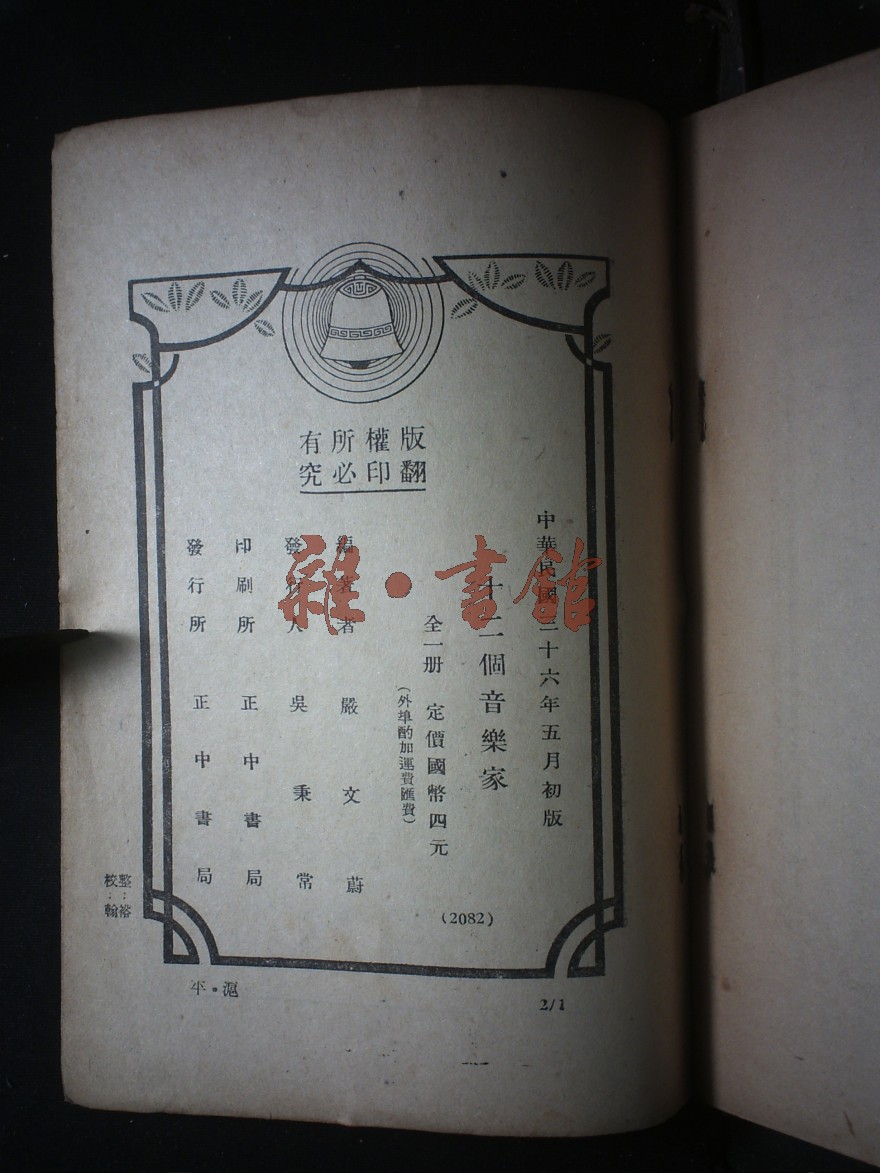 版權所有
翻印必究
中華民國三十六年五月初版
十二個音樂家
全一册 定價國幣四元
(外埠酌加運費匯費)
編著者 嚴文蔚
發行人 吳秉常
印刷所 正中書局
發行所 正中書局
(2082)
整:裕
校:翰
滬。平
2/1
雜·書館